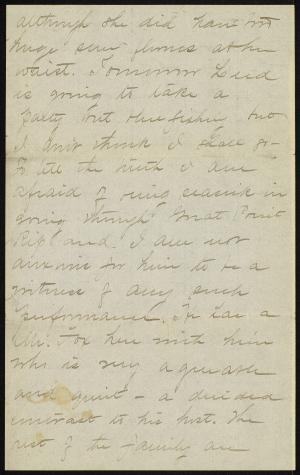 although she did have on
huge
flowers at her
waist. Tomorrow
is going to take a
party out blue fishing but
I don't think I shall go.
To tell the truth I am
afraid of being seasick in
going through Great Point
Rip and I am not
anxious for him to be a
witness of any such
performance. He has a
Mr. Fox here with him
who is very agreeable
and quiet - a decided
contrast to his host. The
rest of the family are